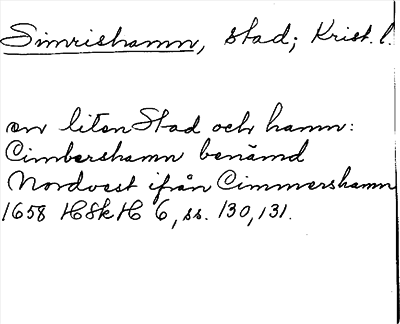 Simrishamn, stad; Krist. l.
en liten Stad och hamn:
Cimbershamn benämd
Nordvest ifrån Cimmershamn
1658 HSkH 6, ss. 130, 131.